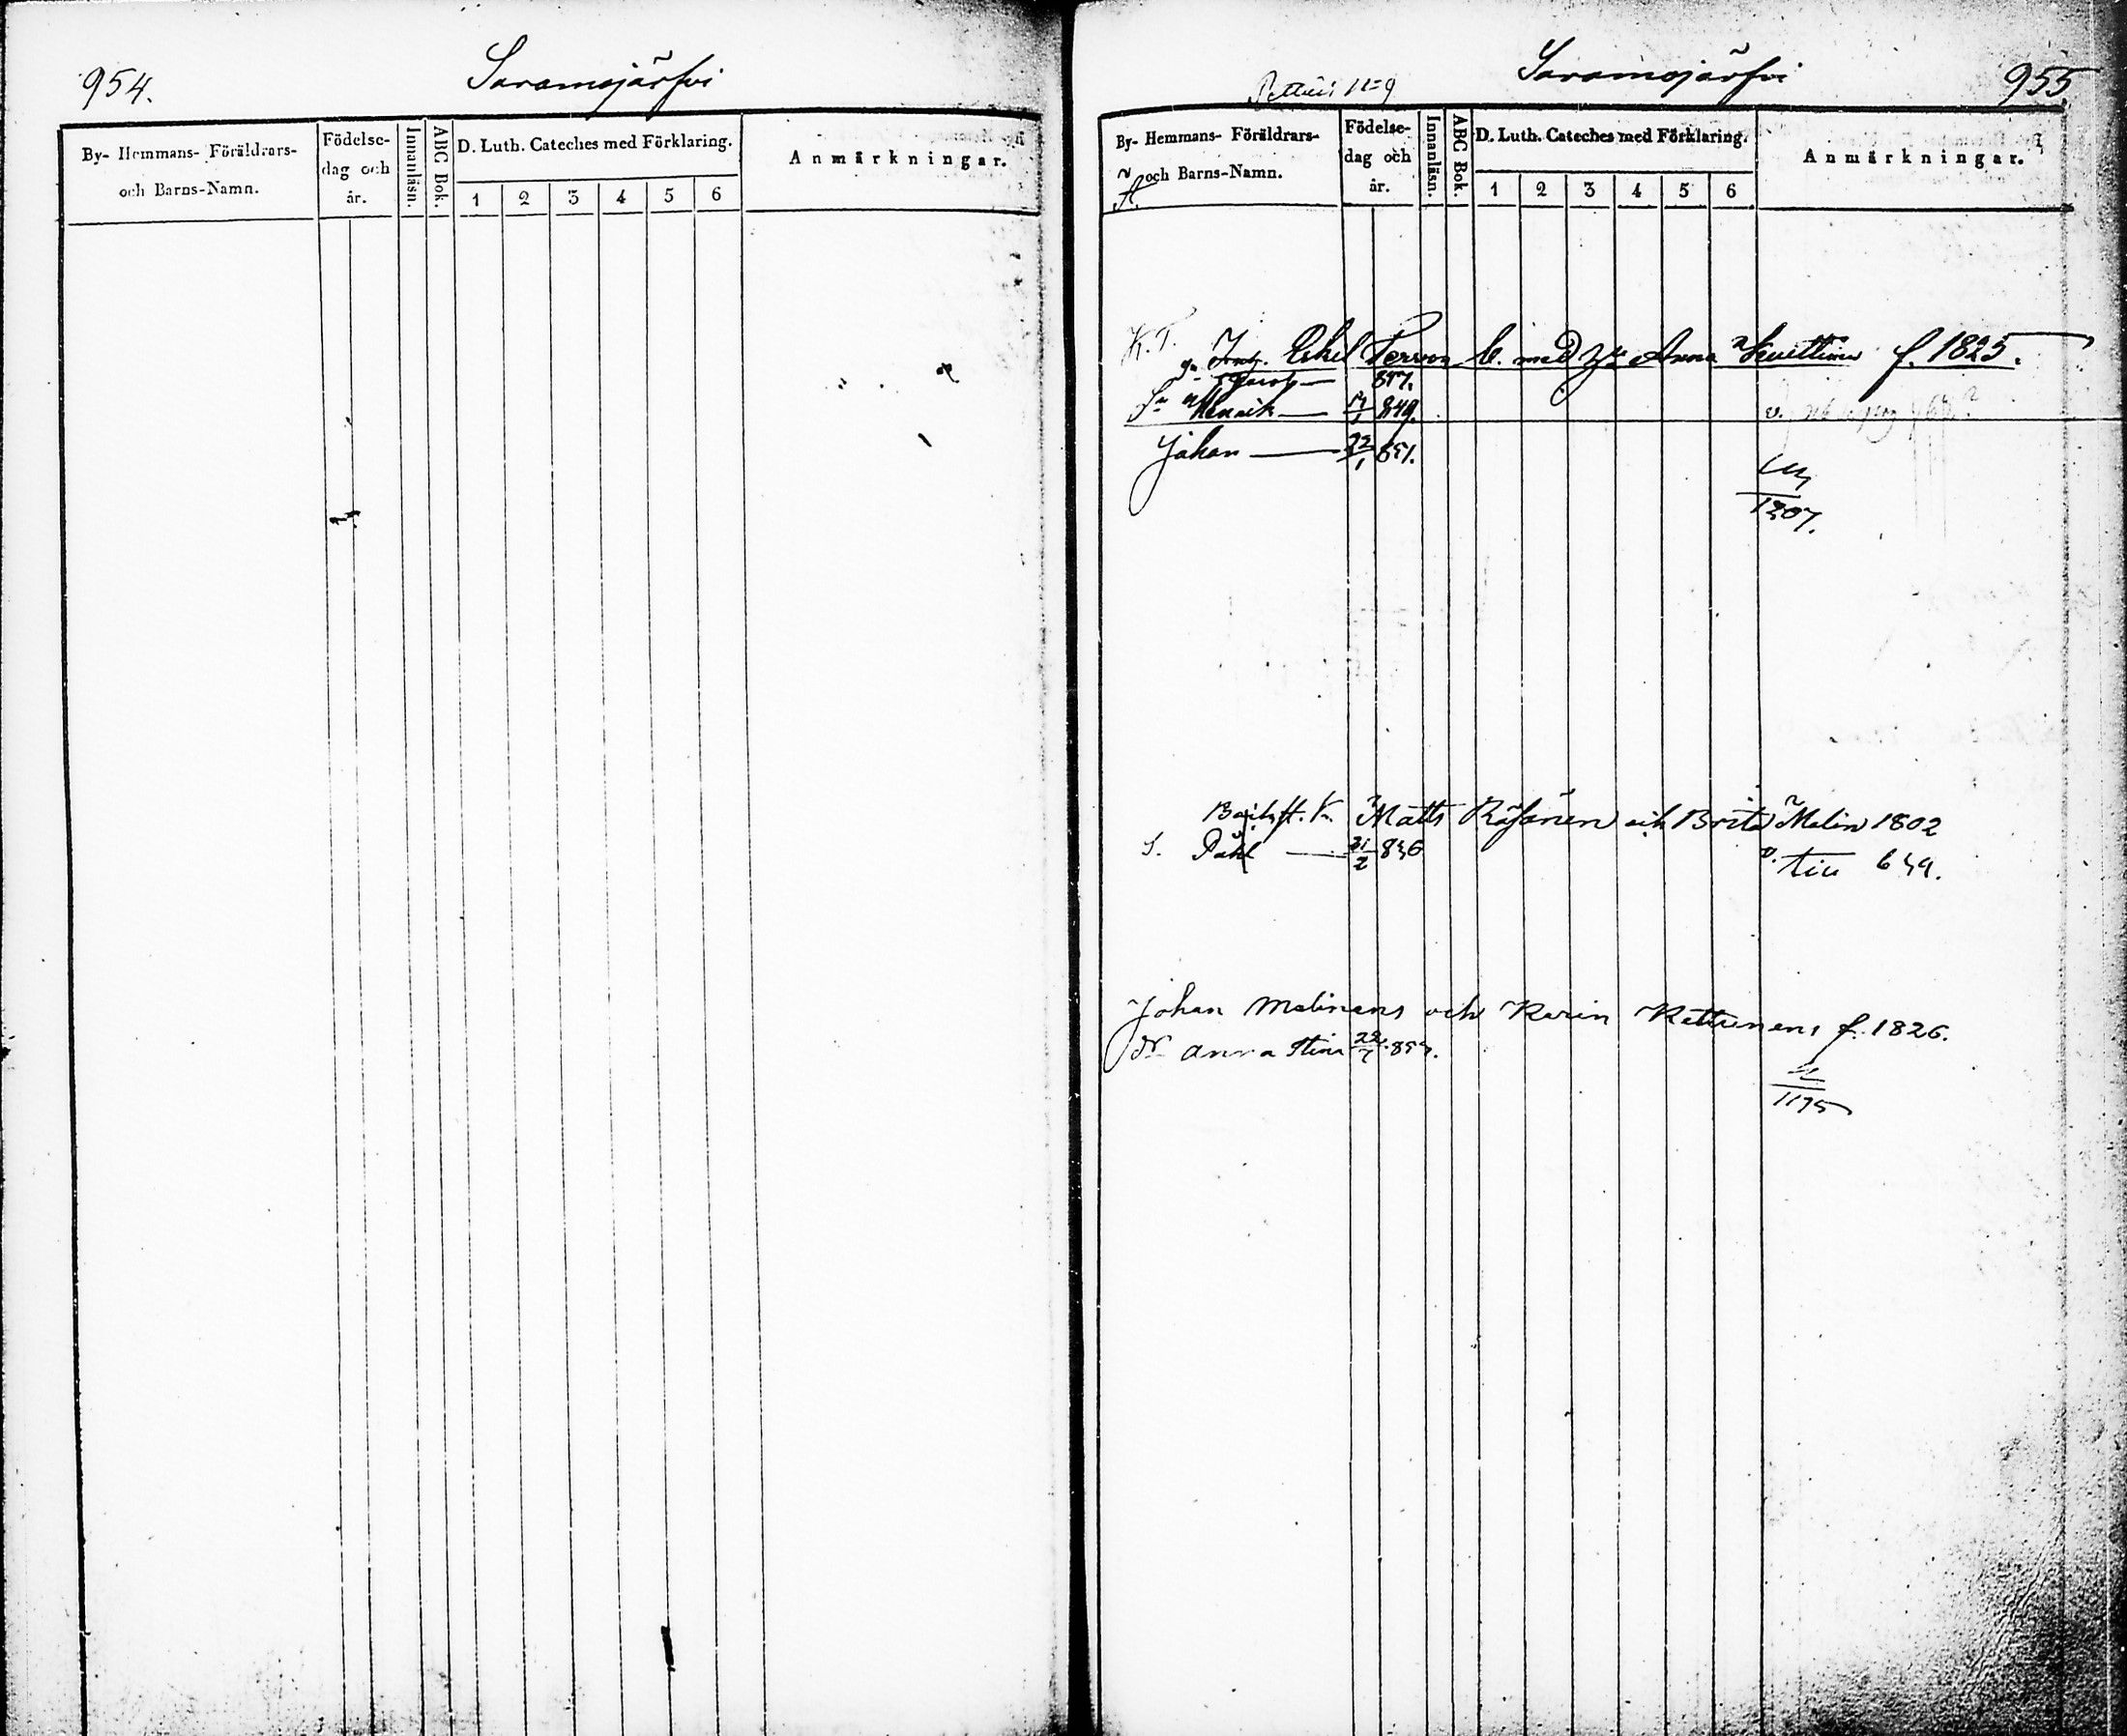 954.
Saramojärfvi
By- Hemmans- Föräldrars-
och Barns-Namn.
Födelse-
dag och
år.
Innanläsn.
ABC Bok.
D. Luth. Cateches med Förklaring.
1 2 3 4 5 6
Anmärkningar.
Saramojärfvi
955
By- Hemmans- Föräldrars-
och Barns-Namn.
Födelse-
dag och
år.
Innanläsn.
ABC Bok.
D. Luth. Cateches med Förklaring.
1 2 3 4 5 6
Anmärkningar.
K.T.
Eskel med Anna f. 1825.
Henrik 849.
Johan 22/1 851.
1207.
Matts Räsänen och Brita Malin 1802
S. Påhl 836
Johan Malinens och Karin Kettunens f. 1826.
Dr Anna Stina
1175